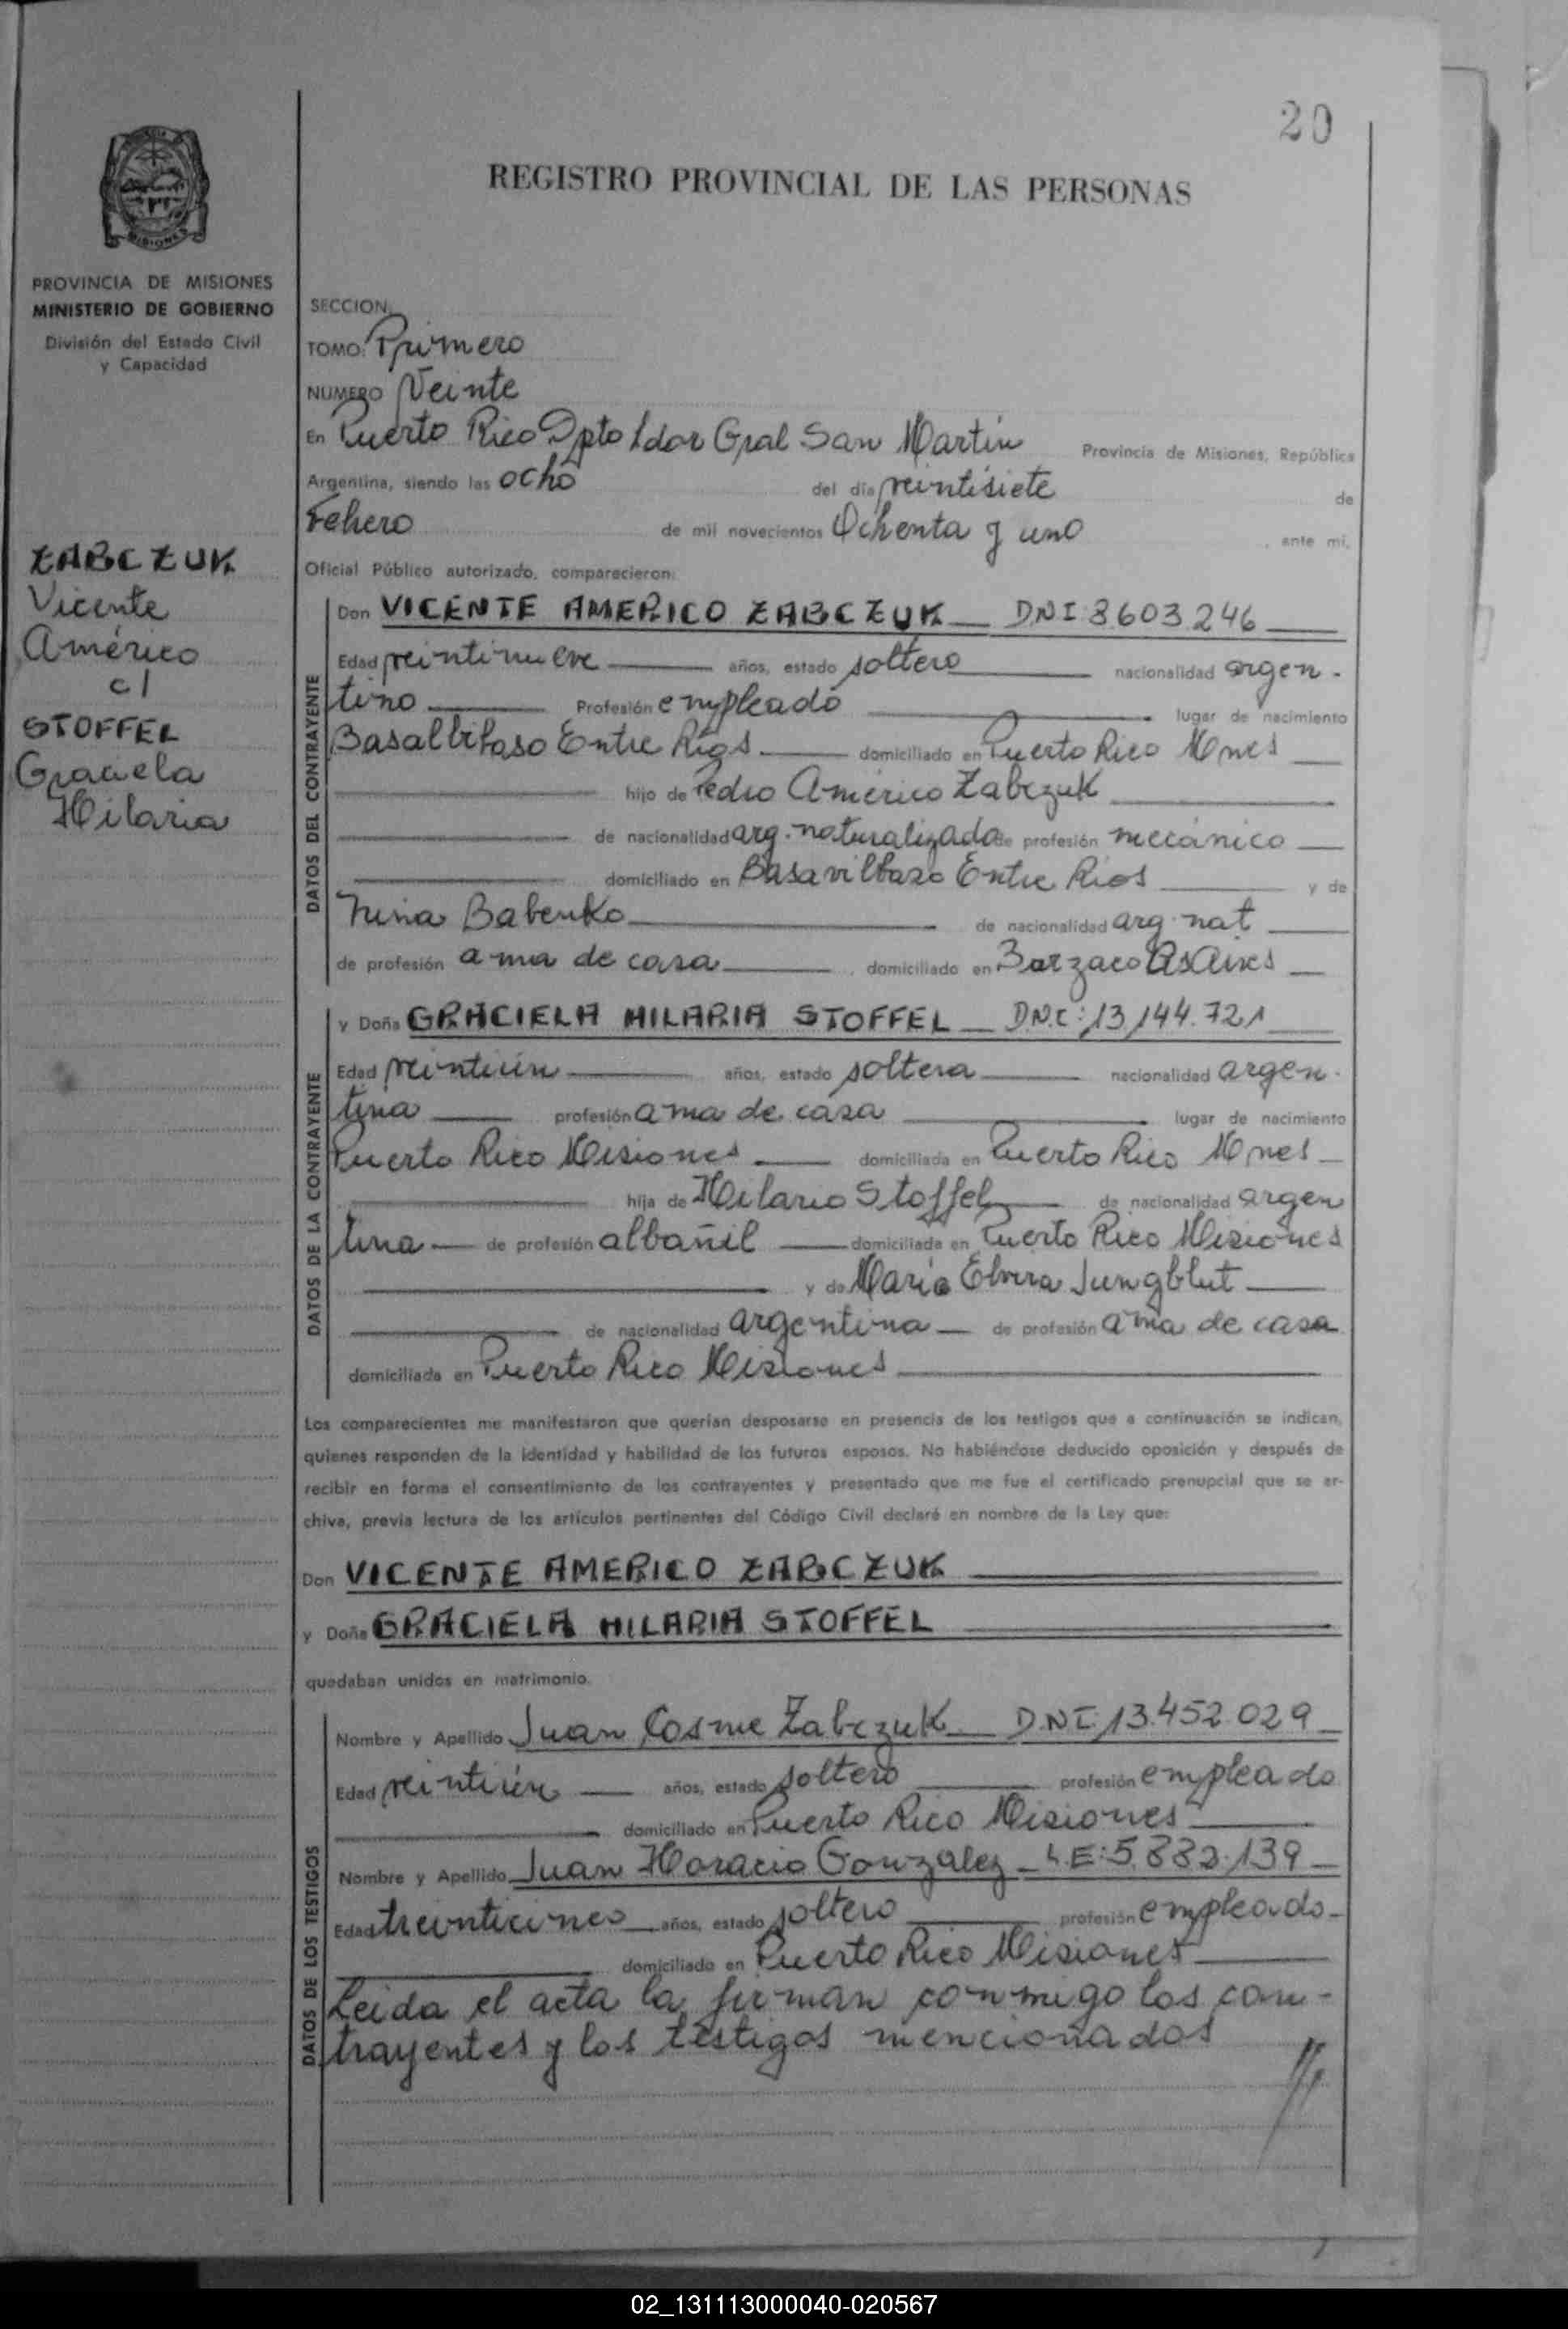 20
REGISTRO PROVINCIAL DE LAS PERSONAS
MISIONES
PROVINCIA DE MISIONES
MINISTERIO DE GOBIERNO
División del Estado Civil
y Capacidad
ZABCZUK
Vicente
Américo
c/
STOFFEL
Graciela
Hilaria
SECCION:
TOMO: Primero
NUMERO Veinte
En Puerto Rico Dpto Ldor Gral San Martin Provincia de Misiones, República
Argentina, siendo las ocho del día veintisiete de
Febero de mil novecientos Ochenta y uno , ante mí,
Oficial Público autorizado, comparecieron:
DATOS DEL CONTRAYENTE
Don VICENTE AMERICO ZABCZUK DNI 8.603.246
Edad veintinueve años, estado soltero nacionalidad argen-
tino Profesión empleado lugar de nacimiento
Basalbilbaso Entre Ríos domiciliado en Puerto Rico Mnes
hijo de Pedro Américo Zabczuk
de nacionalidad arg. naturalizado de profesión mecánico
domiciliado en Basavilbaso Entre Ríos y de
Nina Babenko de nacionalidad arg. nat
de profesión ama de casa domiciliado en Burzaco Bs Aires
DATOS DE LA CONTRAYENTE
y Doña GRACIELA HILARIA STOFFEL D.N.I: 13.144.721
Edad veintiún años, estado soltera nacionalidad argen-
tina profesión ama de casa lugar de nacimiento
Puerto Rico Misiones domiciliada en Puerto Rico Mnes
hija de Hilario Stoffel de nacionalidad argen
tina de profesión albañil domiciliada en Puerto Rico Misiones
y de María Elvira Jungblut
de nacionalidad argentina de profesión ama de casa
domiciliada en Puerto Rico Misiones
Los comparecientes me manifestaron que querían desposarse en presencia de los testigos que a continuación se indican,
quienes responden de la identidad y habilidad de los futuros esposos. No habiéndose deducido oposición y después de
recibir en forma el consentimiento de los contrayentes y presentado que me fue el certificado prenupcial que se ar-
chiva, previa lectura de los artículos pertinentes del Código Civil declaré en nombre de la Ley que:
Don VICENTE AMERICO ZABCZUK
y Doña GRACIELA HILARIA STOFFEL
quedaban unidos en matrimonio.
DATOS DE LOS TESTIGOS
Nombre y Apellido Juan Cosme Zabczuk D.N.I. 13.452.029
Edad veintiún años, estado soltero profesión empleado
domiciliado en Puerto Rico Misiones
Nombre y Apellido Juan Horacio Gonzalez L.E: 5.882.139
Edad treinticinco años, estado soltero profesión empleado
domiciliado en Puerto Rico Misiones
Leida el acta la firman conmigo los con-
trayentes y los testigos mencionados
//
02_131113000040-020567